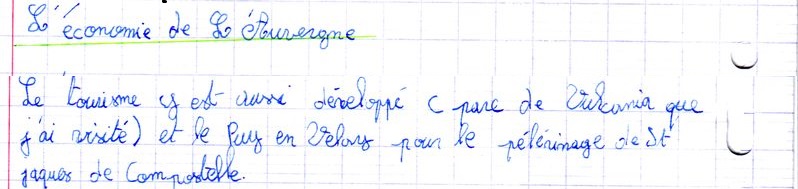 L'économie de L'Auvergne
Le tourisme y est aussi développé ( parc de Vulcania que
j'ai visité) et le Puy en Velay pour le pélérinage de St
jaques de Compostelle.